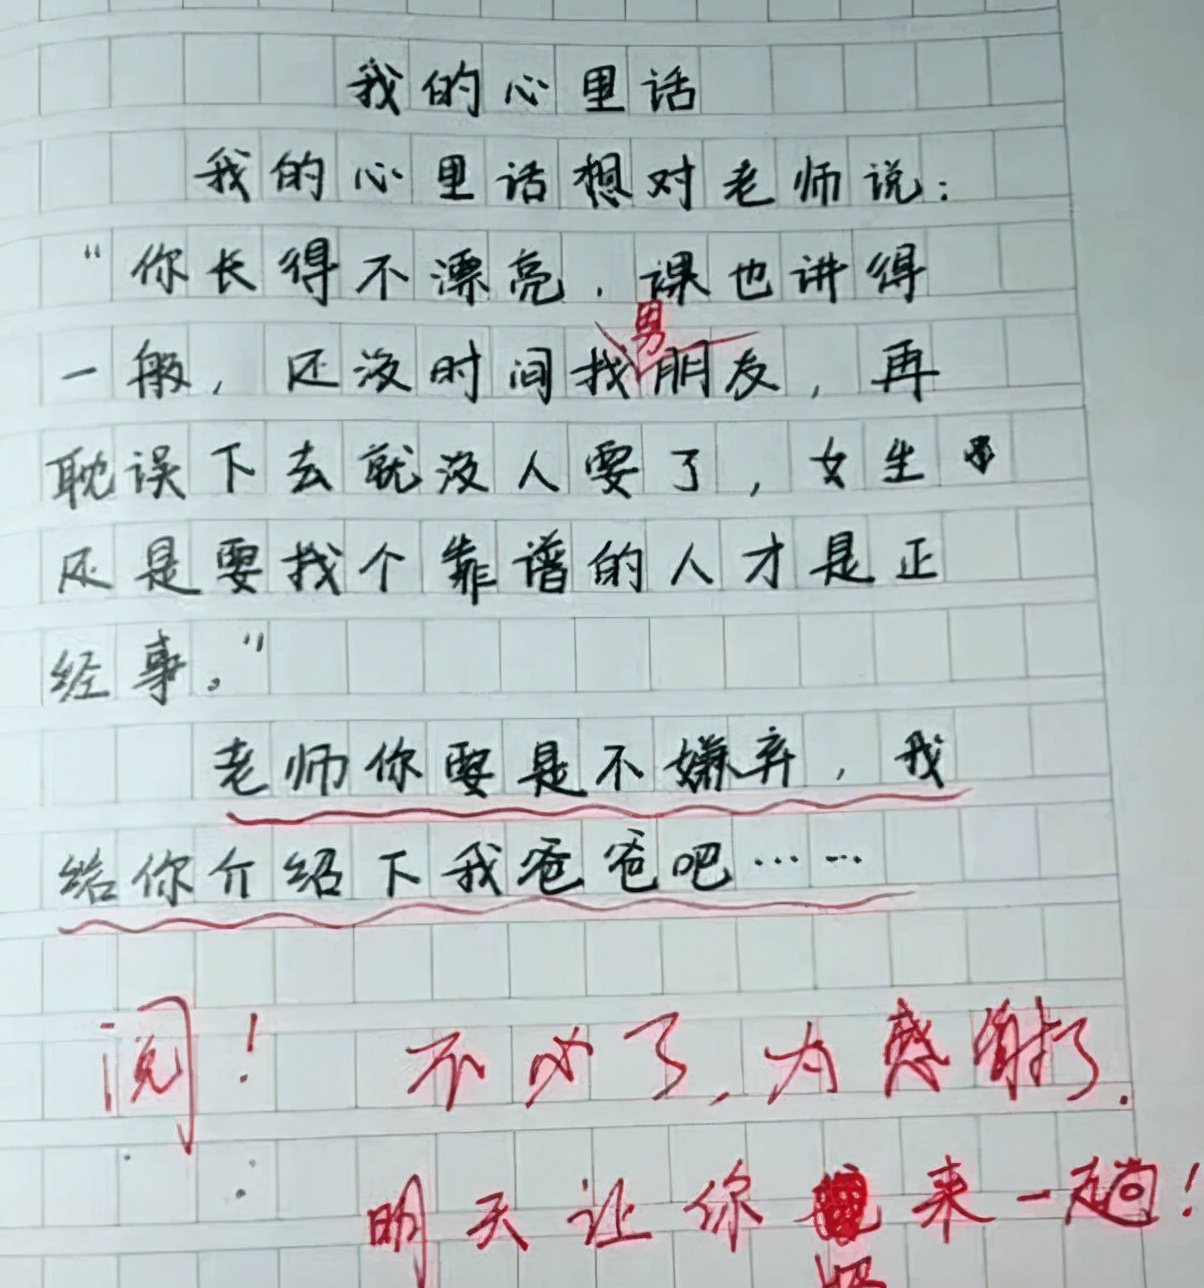 我的心里话
我的心里话想对老师说：
“你长得不漂亮，课也讲得
男
一般，还没时间找朋友，再
耽误下去就没人要了，女生
还是要找个靠谱的人才是正
经事。”
老师你要是不嫌弃，我
给你介绍下我爸爸吧……
阅！ 不必了，太感谢了.
明天让你来一趟！